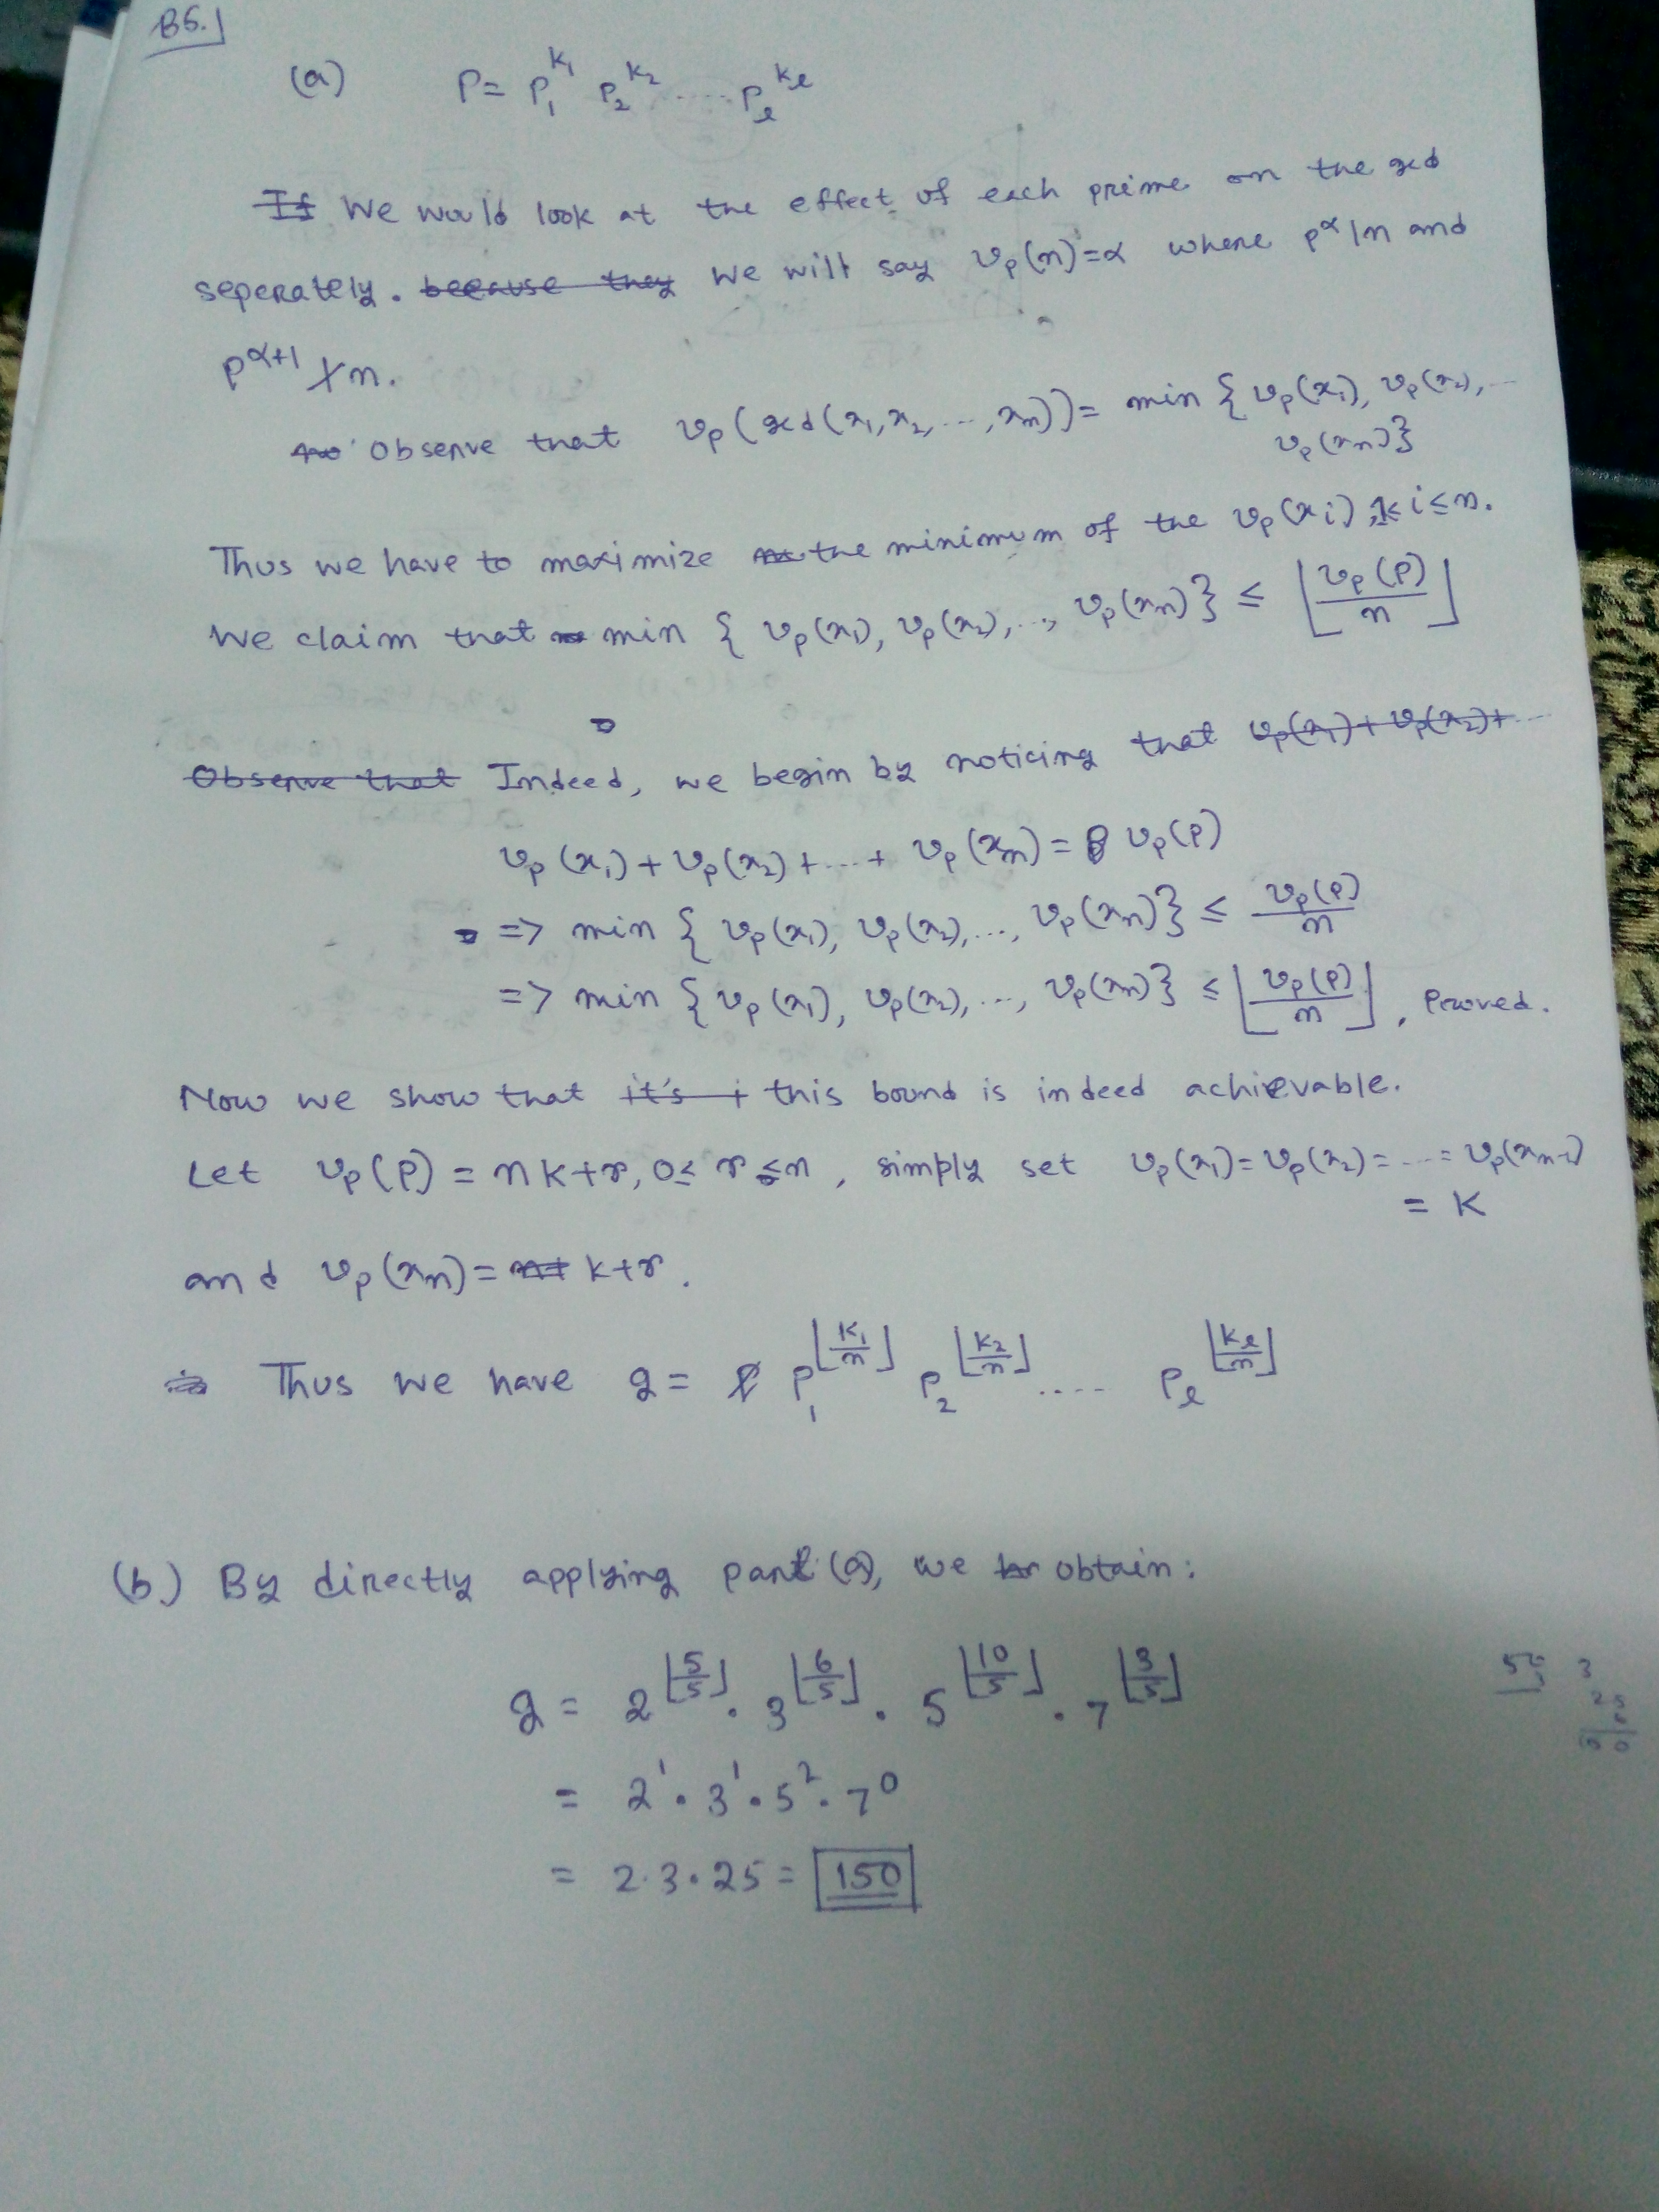 B6.
(a) P = p₁^k₁ p₂^k₂ ..... p_ℓ^k_ℓ
If We would look at the effect of each prime on the gcd
seperately. because they We will say v_p(n)=α where p^α|n and
p^α+1 ∤ n.
Observe that v_p(gcd(x₁,x₂,...,xₙ)) = min {v_p(x₁), v_p(x₂),...
v_p(xₙ)}
Thus we have to maximize the minimum of the v_p(xᵢ), 1≤ i≤n.
We claim that min { v_p(x₁), v_p(x₂),..., v_p(xₙ)} ≤ ⌊v_p(P)/n⌋
Observe that Indeed, we begin by noticing that v_p(x₁)+v_p(x₂)+...
v_p(x₁)+v_p(x₂)+...+ v_p(xₙ) = v_p(P)
=> min { v_p(x₁), v_p(x₂),..., v_p(xₙ)} ≤ v_p(P)/n
=> min { v_p(x₁), v_p(x₂),..., v_p(xₙ)} ≤ ⌊v_p(P)/n⌋, Proved.
Now we show that it's this bound is indeed achievable.
Let v_p(P) = nk+r, 0≤ r ≤n, simply set v_p(x₁)=v_p(x₂)=...=v_p(xₙ₋₁)
= K
and v_p(xₙ)= k+r.
Thus we have g = p₁^⌊k₁/n⌋ p₂^⌊k₂/n⌋ .... p_ℓ^⌊k_ℓ/n⌋
(b) By directly applying part (a), we obtain:
g = 2^⌊5/5⌋ . 3^⌊6/5⌋ . 5^⌊10/5⌋ . 7^⌊3/5⌋
= 2¹ . 3¹ . 5² . 7⁰
= 2.3.25 = 150